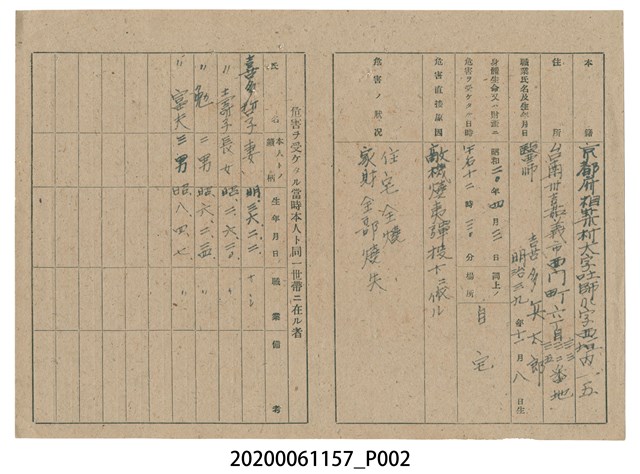 本籍 京都府相楽村大字吐師小字西垣内一五
住所 台南州嘉義市西門町六丁目三五二番地
職業氏名及生年月日 醫師 喜多英太郎 明治三九年十二月八日生
身體生命又ハ財產ニ危害ヲ受ケタル日時 昭和二〇年四月三日午后十二時三〇分 同上ノ場所 自宅
危害直接原因 敵機燒夷彈投下ニ依ル
危害ノ狀況 住宅全燬
家財全部燒失
危害ヲ受ケタル當時本人ト同一世帶ニ在ル者
氏名 本人トノ續柄 生年月日 職業 備考
喜多 妻 明、三六、二、二、
〃壽子 長女 昭、二、六、二〇、
〃勉 二男 昭、六、二、
〃富夫 三男 昭、八、四、七、
20200061157_P002